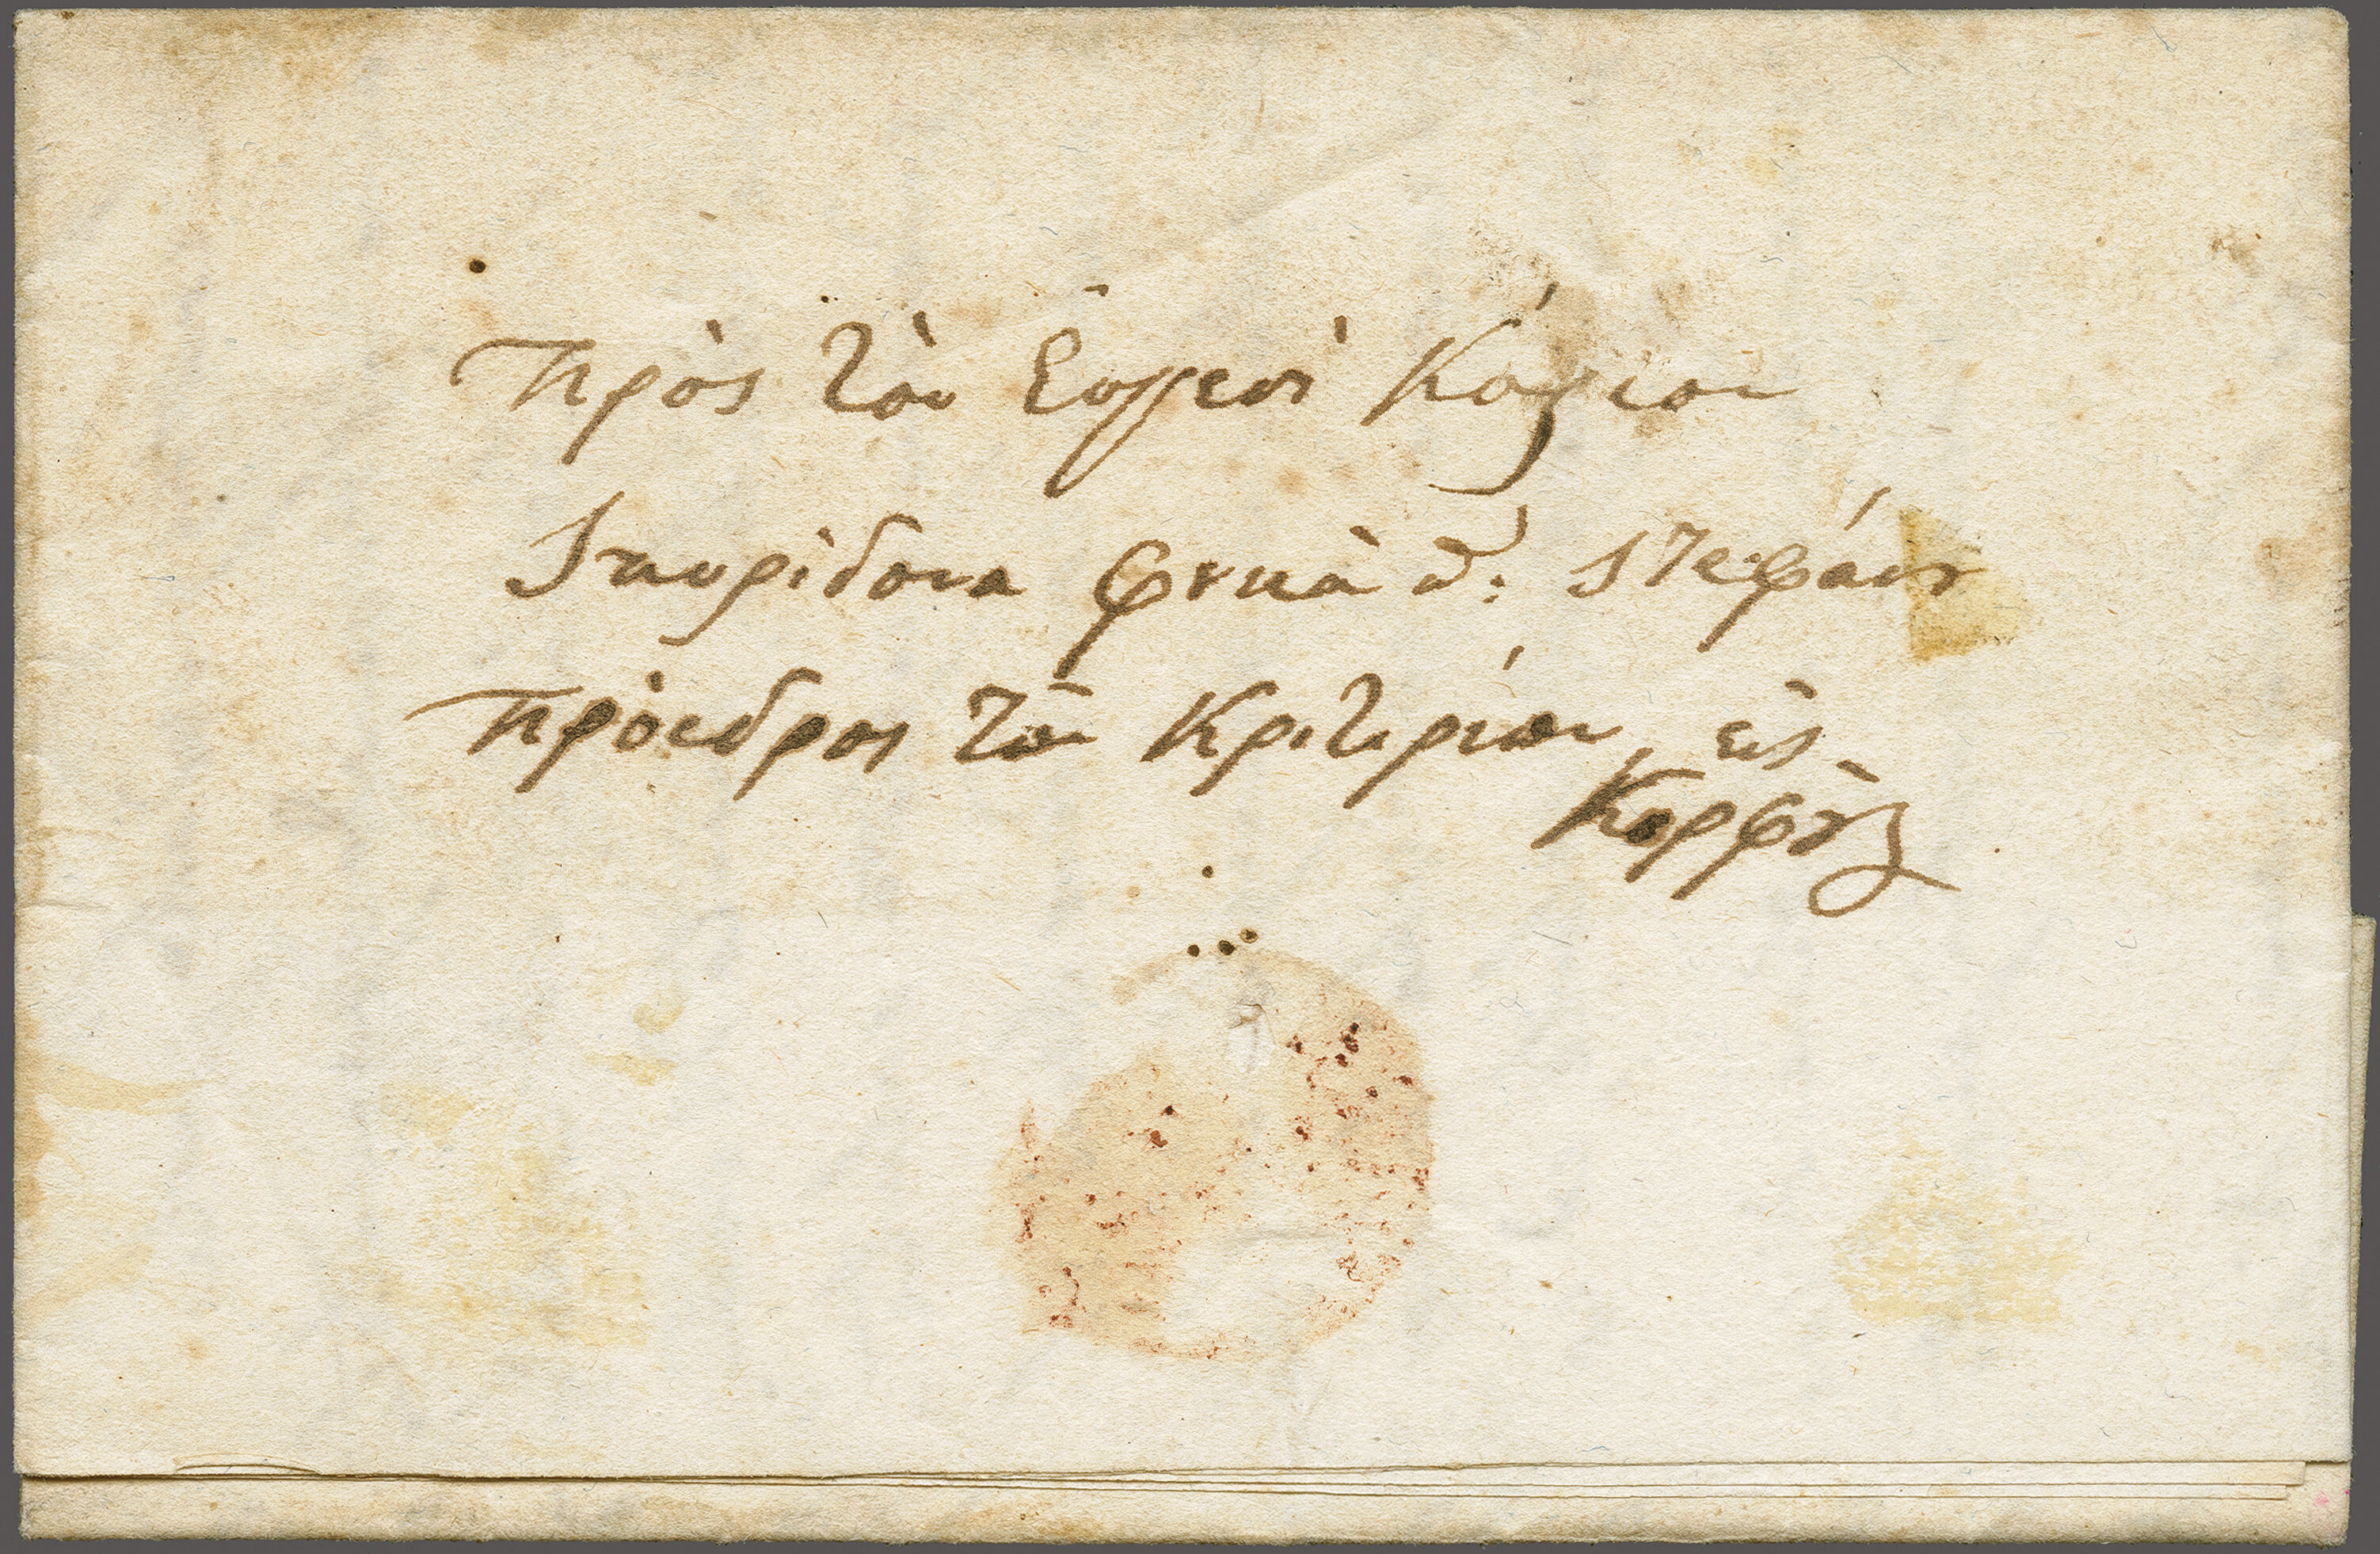 Πρὸς τὸν Εὐγενῆ Κύριον
Σπυρίδονα Φοκᾶ π: Στεφάνου
Πρόεδρος τῶν Κριτιρίων εἰς
Κορφοὺς